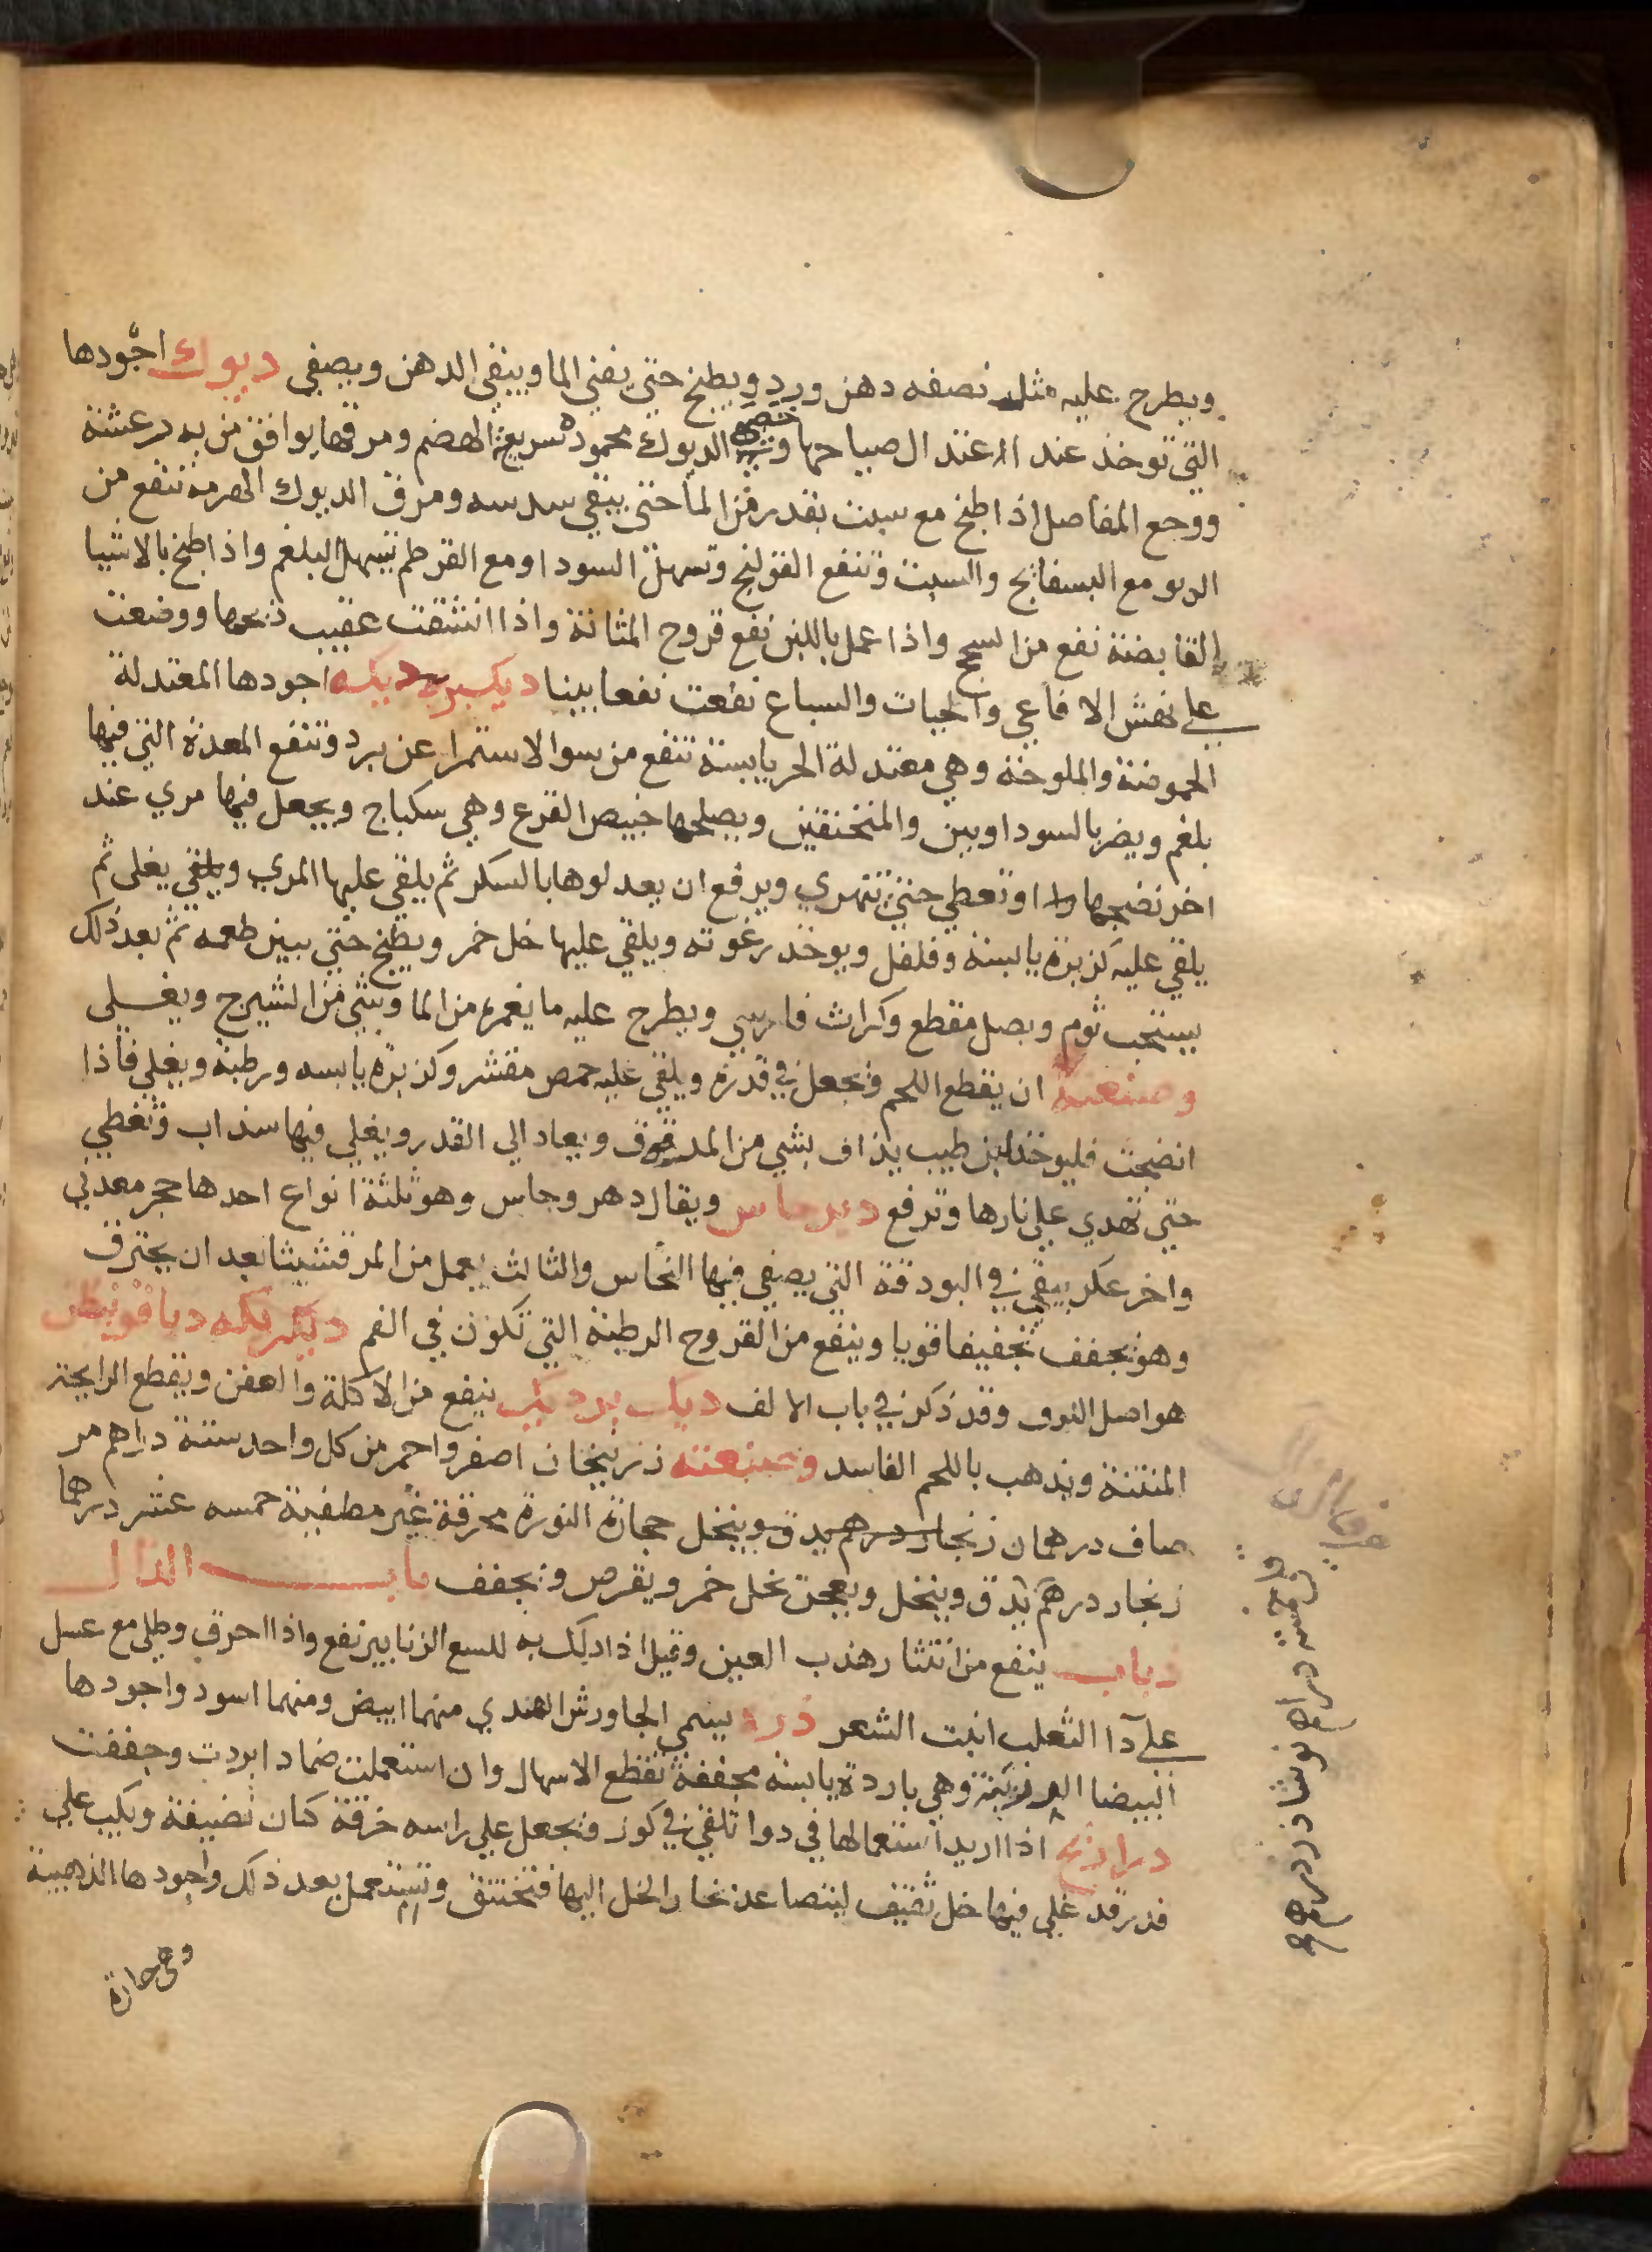 ويطرح عليه مثل نصفه دهن ورد ويطبخ حتي يفني الما ويبقي الدهن ويصفي ديوك اجودها
التي توخذ عند الاعتدال صياحها وخصي الديوك محمودة سريعة الهضم ومرقها يوافق من به رعشة
ووجع المفاصل اذا طبخ مع سبت بقدر من الما حتي يبقي سدسه ومرق الديوك الهرمة تنفع من
الربو مع البسفايج والسبت وتنفع القولنج وتسهل السودا ومع القرطم تسهل البلغم واذا طبخ بالاشيا
القابضة نفع من السحج واذا عمل باللبن نفع قروح المثانة واذا انشقت عقيب ذبحها ووضعت
علي نهش الافاعي والحيات والسباع نفعت نفعا بينا ديكبريديكه اجودها المعتدلة
الحموضة والملوحة وهي معتدلة الحر يابسة تنفع من سو الاستمرا عن برد وتنفع المعدة التي فيها
بلغم ويضر بالسوداويين والمنخنقين ويصلحها خبيص القرع وهي سكباج ويجعل فيها مري عند
اخر نضجها اوتغطي حتي تتهري ويرفع ان يعدلوها بالسكر ثم يلقي عليها المري ويلقي يغلي ثم
يلقي عليه كزبرة يابسة وفلفل ويوخذ رغوته ويلقي عليها خل خمر ويطبخ حتي يبين طعمه ثم بعد ذلك
يستحب ثوم وبصل مقطع وكراث فارسي ويطرح عليه ما يغمره من الما وشي من الشيرج ويغلي
وصنعته ان يقطع اللحم فيجعل في قدره ويلقي عليه حمص مقشر وكزبره يابسه ورطبة ويغلي فاذا
انضجت فليوخذ لبن طيب يذاف بشي من المدقوق ويعاد الي القدر ويغلي فيها سذاب وتغطي
حتي تهدي علي نارها وترفع ويقال دهر وجاس وهو ثلثة انواع احدها حجر معدني
واخر عكر يبقي في البودقة التي يصفي فيها النحاس والثالث يعمل من المرقشيثا بعد ان يحترق
وهو يجفف تجفيفا قويا وينفع من القروح الرطبة التي تكون في الفم
هو اصل وقد ذكر في باب الالف ديك برديك ينفع من الاكلة والعفن ويقطع الرايحة
المنتنة ويذهب باللحم الفاسد وصنعته زرنيخان اصفر واحمر من كل واحد ستة دراهم مر
صاف درهمان زنجار درهم يدق وينخل حجارة النورة محرقة غير مطفية خمسه عشر درهما
زنجار درهم يدق وينخل ويعجن بخل خمر ويقرص ويجفف باب الذال
ذباب ينفع من انتثار هدب العين وقيل اذا دلك به للسع الزنابير نفع واذا احرق وطلي مع عسل
علي دا الثعلب انبت الشعر ذره يسمي الجاورش الهندي منهما ابيض ومنهما اسود واجودها
البيضا الرزينة وهي باردة يابسة مجففة تقطع الاسهال وان استعملت ضمادا بردت وجففت
ذراريح اذا اريد استعمالها في دوا تلقي في كوز فيجعل علي راسه خرقة كتان نضيفة ويكب علي
قدر قد غلي فيها خل ثقيف ليتصاعد بخار الخل اليها فتختنق وتستعمل بعد ذلك واجودها الذهبية
وهي حارة